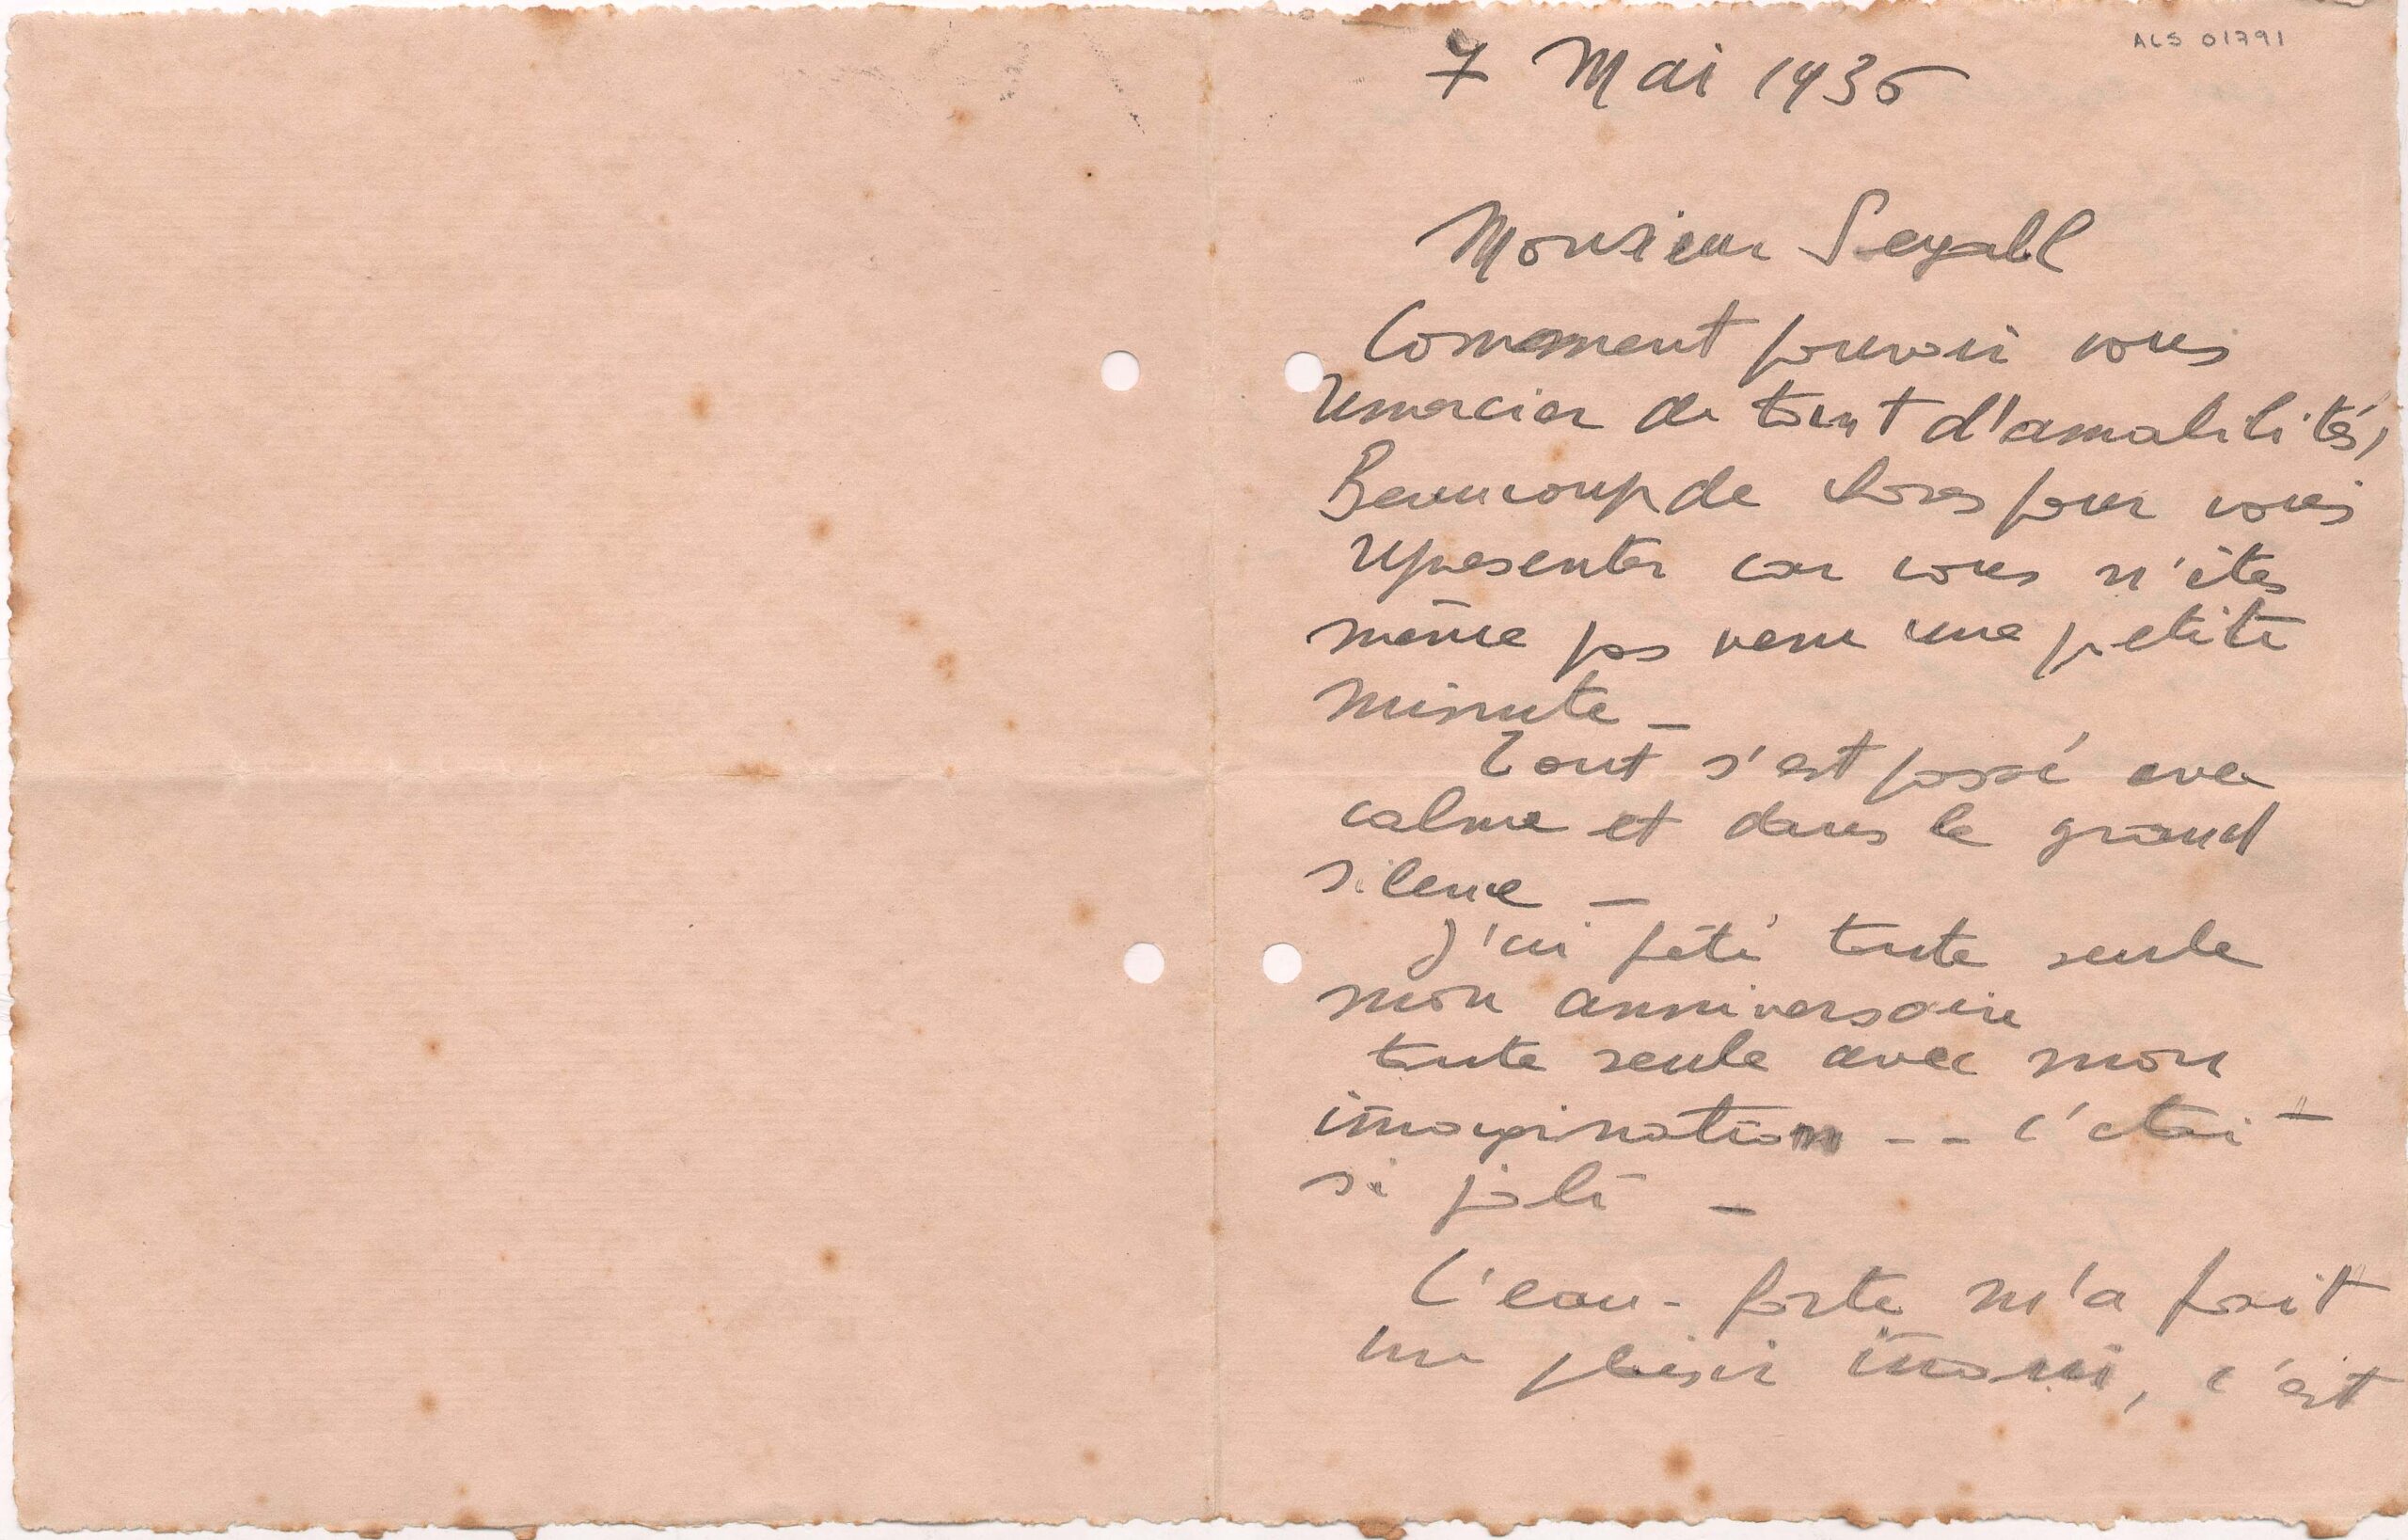 ALS 01791
7 Mai 1936
Monsieur Segall
Comment pouvoir vous
remercier de tant d'amabilités,
Beaucoup de choses pour vous
représenter car vous n'êtes
même pas venu une petite
minute _
Tout s'est passé avec
calme et dans le grand
silence _
J'ai fêté toute seule
mon anniversaire
toute seule avec mon
imagination -- c'était
si joli _
L'eau-forte m'a fait
un plaisir inoui, c'est